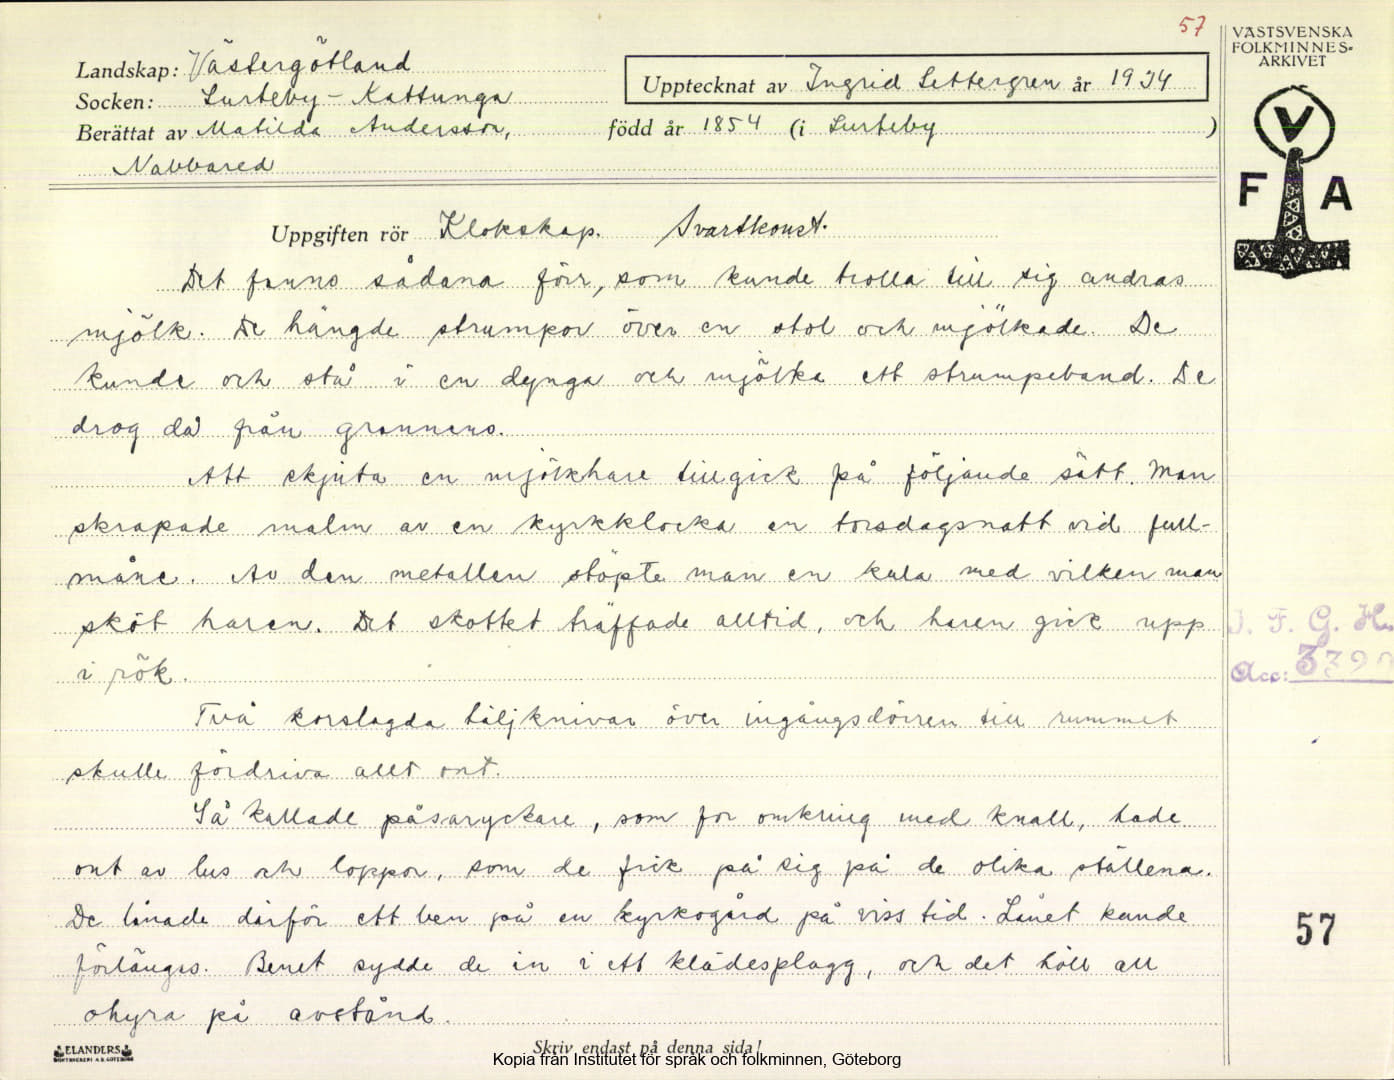 57
VÄSTSVENSKA
FOLKMINNES-
ARKIVET
Landskap: Västergötland
Upptecknat av Ingrid Settergren år 1934
Socken: Surteby-Kattunga
Berättat av Matilda Andersson, född år 1854 (i Surteby)
Nabbared
V
F A
Uppgiften rör Klokskap. Svartkonst.
Det fanns sådana förr, som kunde trolla till sig andras
mjölk. De hängde strumpor över en stol och mjölkade. De
kunde och stå i en dynga och mjölka ett strumpeband. De
drog då från grannens.
Att skjuta en mjölkhare tillgick på följande sätt. Man
skrapade malm av en kyrkklocka en torsdagsnatt vid full-
måne. Av den metallen stöpte man en kula med vilken man
sköt haren. Det skottet träffade alltid, och haren gick upp
i rök.
Två korslagda täljknivar över ingångsdörren till rummet
skulle fördriva allt ont.
Så kallade påsaryckare, som for omkring med knall, hade
ont av lus och loppor, som de fick på sig på de olika ställena.
De lånade därför ett ben på en kyrkogård på viss tid. Lånet kunde
förlängas. Benet sydde de in i ett klädesplagg, och det höll all
ohyra på avstånd.
I. F. G. H.
Acc: 3390
57
ELANDERS
Skriv endast på denna sida!
Kopia från Institutet för språk och folkminnen, Göteborg